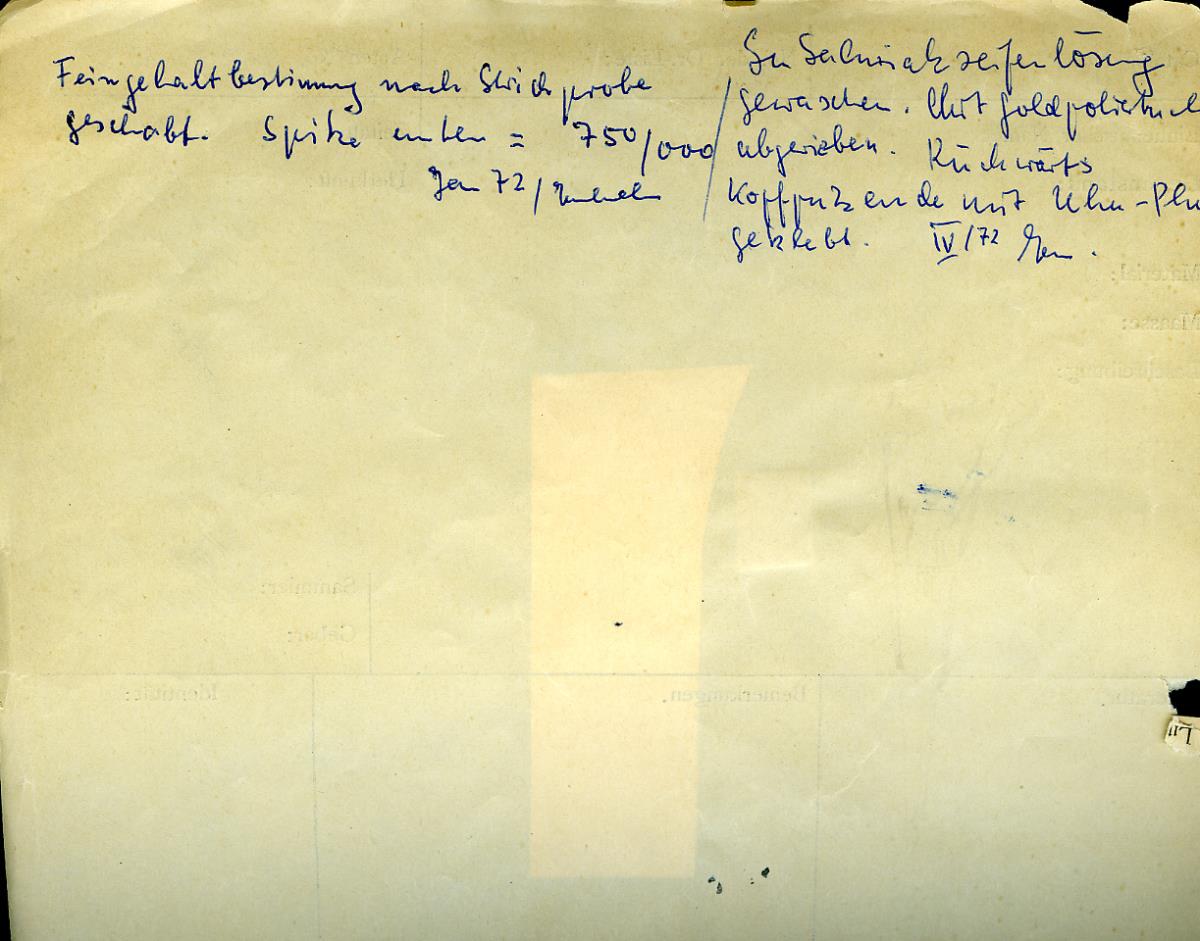 Feingehaltbestimmung nach Strichprobe
geschabt. Spitze unten = 750/000
Jan 72 /
In Salmiakseifenlösung
gewaschen. Mit Goldpoliertuch
abgerieben. Rückwärts
Kopfputzende mit Uhu-Plu
geklebt. IV/72
Material:
Maasse:
Beschreibung:
Sammler:
Geber:
Identität:
Bemerkungen.